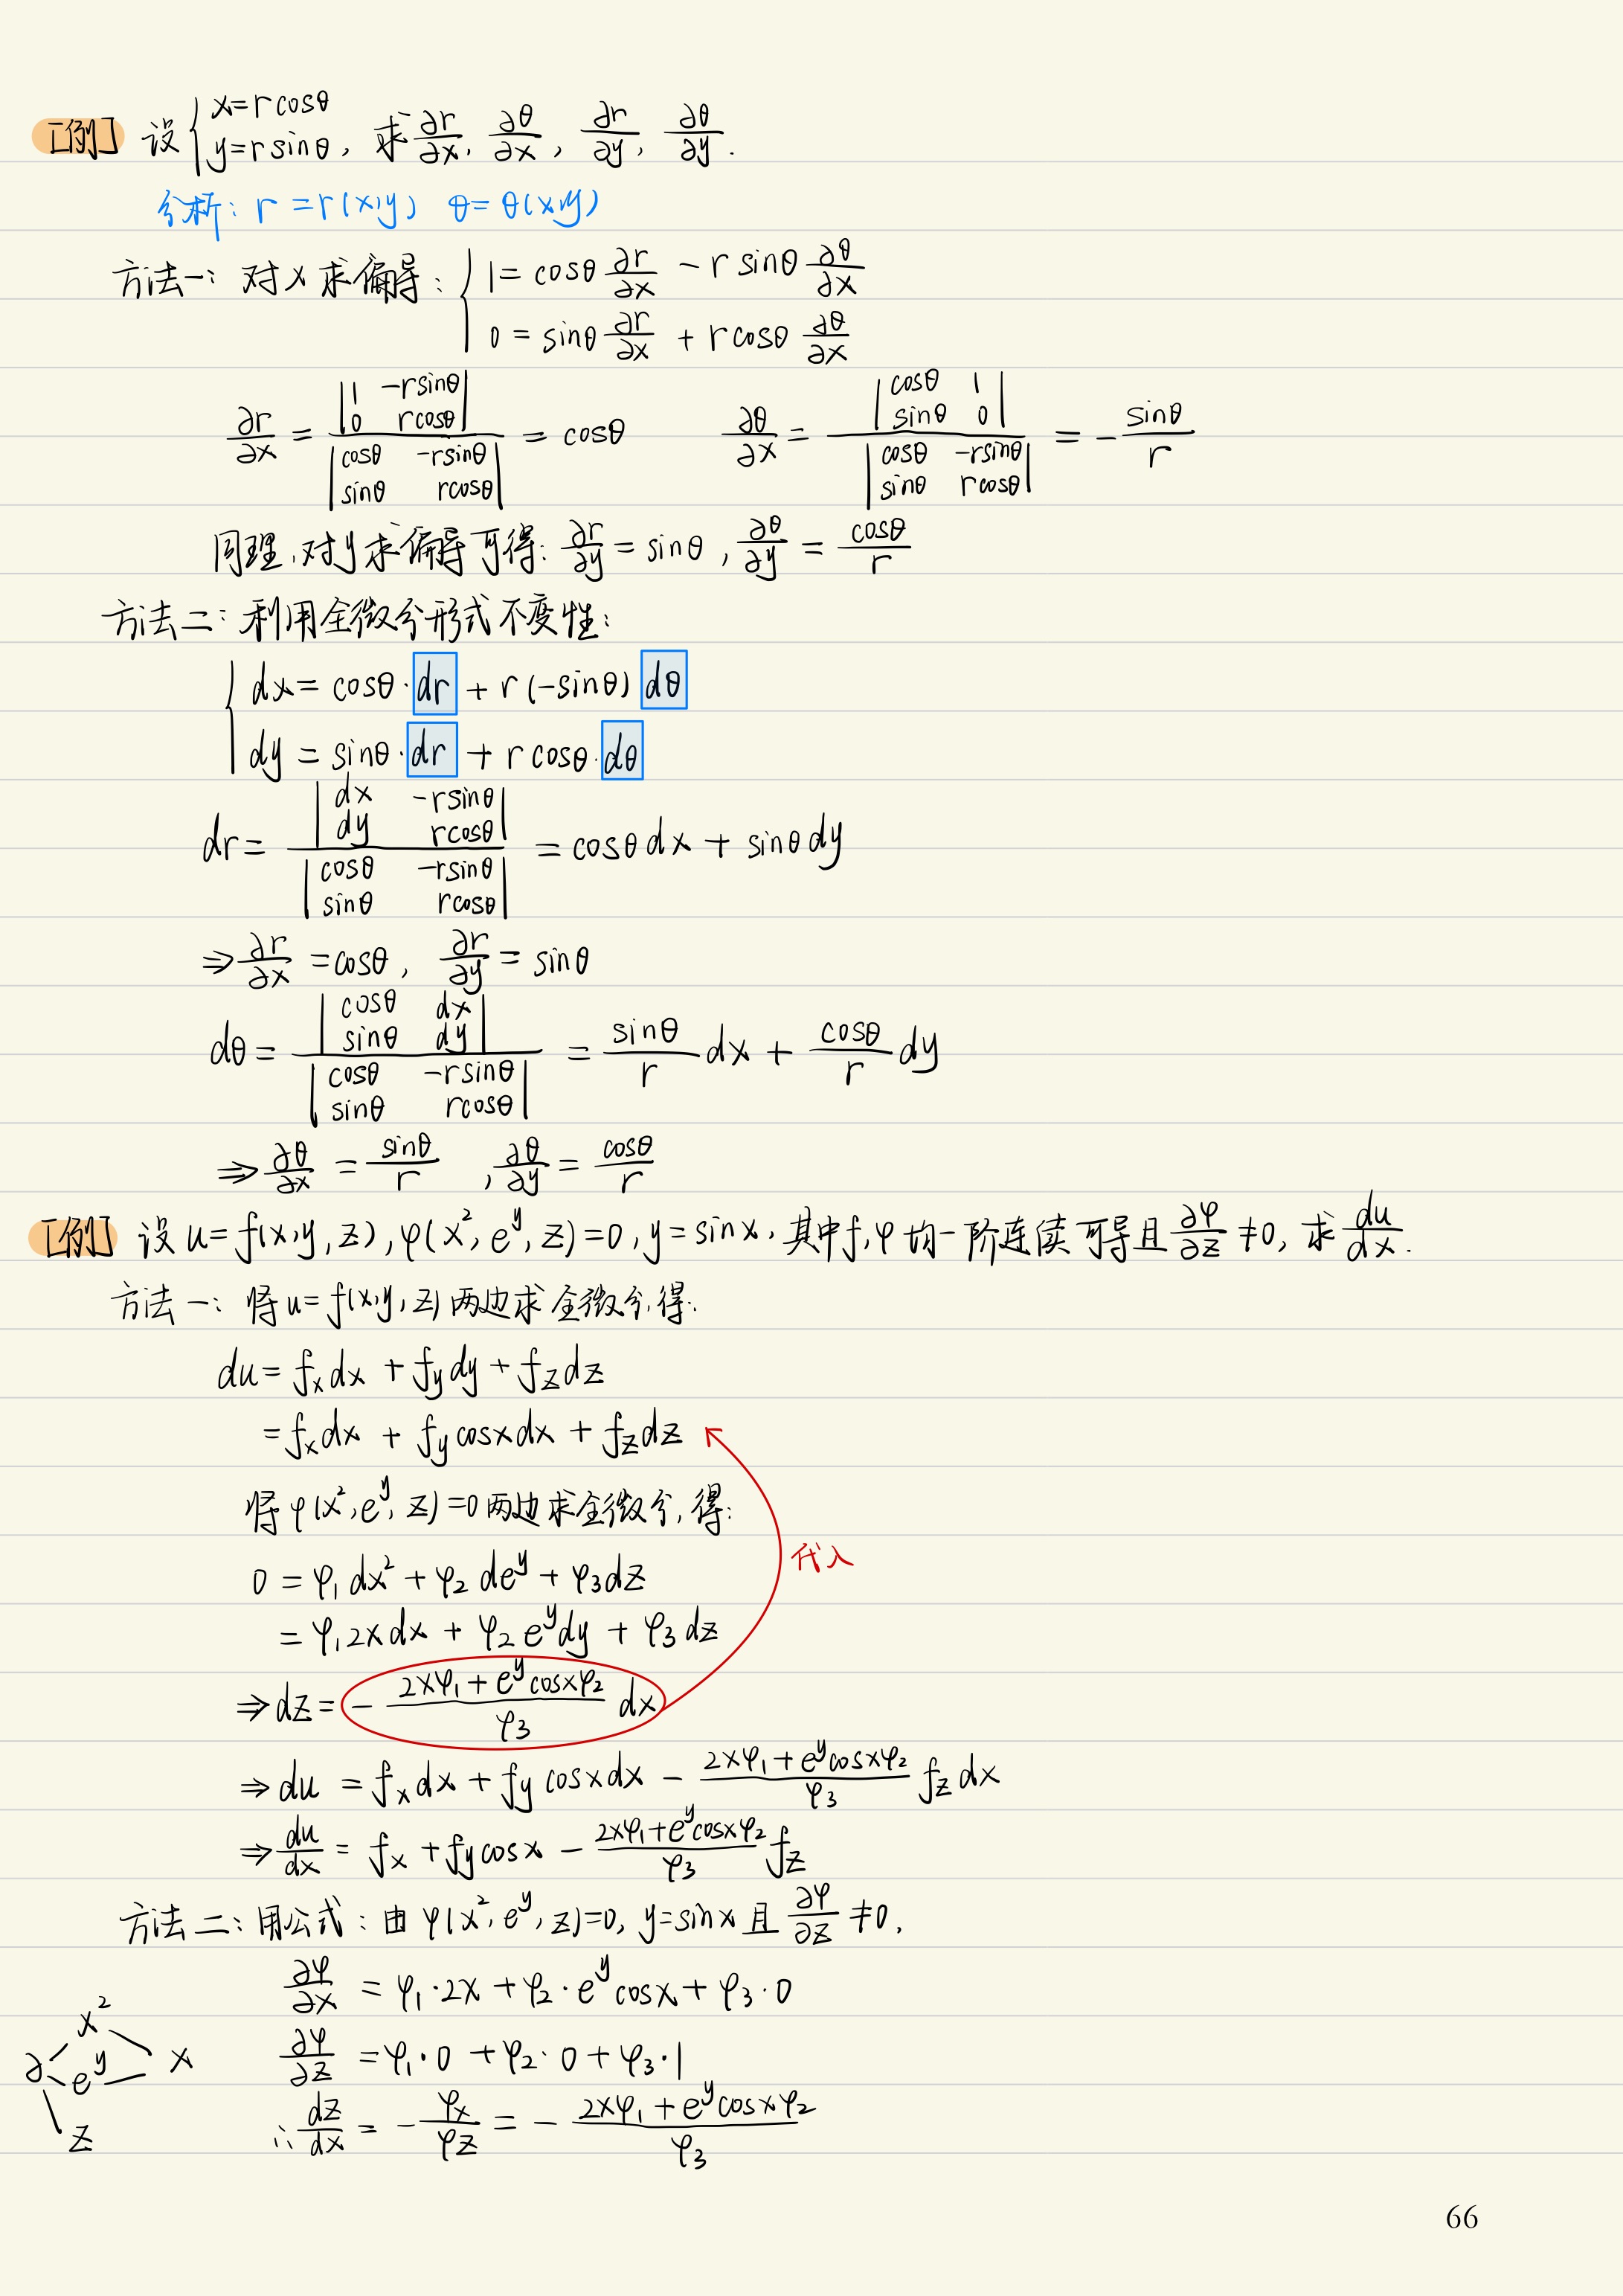 [例] 设 { x=rcosθ
y=rsinθ, 求 ∂r/∂x, ∂θ/∂x, ∂r/∂y, ∂θ/∂y.
分析: r=r(x,y) θ=θ(x,y)
方法一: 对x求偏导: { 1=cosθ ∂r/∂x - r sinθ ∂θ/∂x
0=sinθ ∂r/∂x + rcosθ ∂θ/∂x
∂r/∂x = |1 -rsinθ; 0 rcosθ| / |cosθ -rsinθ; sinθ rcosθ| = cosθ ∂θ/∂x = |cosθ 1; sinθ 0| / |cosθ -rsinθ; sinθ rcosθ| = - sinθ/r
同理,对y求偏导可得: ∂r/∂y = sinθ, ∂θ/∂y = cosθ/r
方法二: 利用全微分形式不变性:
{ dx=cosθ·dr + r(-sinθ) dθ
dy=sinθ·dr + rcosθ·dθ
dr = |dx -rsinθ; dy rcosθ| / |cosθ -rsinθ; sinθ rcosθ| = cosθdx + sinθdy
⇒ ∂r/∂x = cosθ, ∂r/∂y = sinθ
dθ = |cosθ dx; sinθ dy| / |cosθ -rsinθ; sinθ rcosθ| = sinθ/r dx + cosθ/r dy
⇒ ∂θ/∂x = sinθ/r , ∂θ/∂y = cosθ/r
[例] 设u=f(x,y,z), φ(x²,e^y,z)=0, y=sinx, 其中f,φ均一阶连续可导且 ∂φ/∂z ≠0, 求 du/dx.
方法一: 将u=f(x,y,z)两边求全微分,得:
du = f_x dx + f_y dy + f_z dz
= f_x dx + f_y cosxdx + f_z dz
将φ(x²,e^y,z)=0两边求全微分,得:
0 = φ₁dx² + φ₂de^y + φ₃dz
代入
= φ₁2xdx + φ₂e^y dy + φ₃dz
⇒ dz = - (2xφ₁+e^y cosxφ₂)/φ₃ dx
⇒ du = f_x dx + f_y cosxdx - (2xφ₁+e^y cosxφ₂)/φ₃ f_z dx
⇒ du/dx = f_x + f_y cosx - (2xφ₁+e^y cosxφ₂)/φ₃ f_z
方法二: 用公式: 由φ(x²,e^y,z)=0, y=sinx且 ∂φ/∂z ≠0,
∂φ/∂x = φ₁·2x + φ₂·e^y cosx + φ₃·0
x²
∂ e^y x
z
∂φ/∂z = φ₁·0 + φ₂·0 + φ₃·1
∴ dz/dx = - φ_x/φ_z = - (2xφ₁+e^y cosxφ₂)/φ₃
66